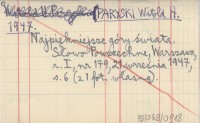 PARYSKI Witold H.
1947.
Najpiękniejsze góry świata.
Słowo Powszechne, Warszawa,
r. I, nr. 179, 21 września 1947,
s. 6 (z 1 fot. własną).